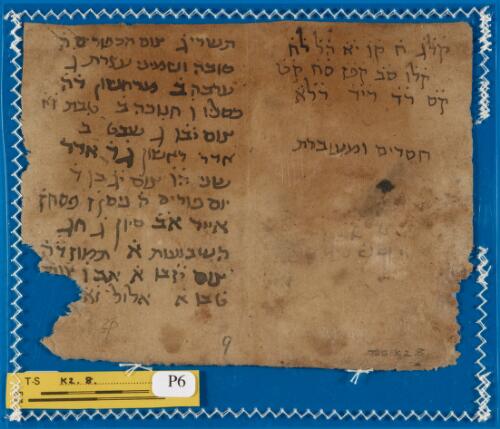 קלג ח קן יא
קלו סב קפז סח קט
קס רד ריד רלא
חסדים ומעוברת
תשרי ג יום הכפורים ה
סוכה ושמיני עצרת ג
ערבה ב מרחשון דה
כסליו ו חנוכה ב טבת וא
יום יבו ג שבט ב
אדר ראשון ג ד אדר
שני הו יום יג בו ד
יום פורים ה ניסן ז פסח ז
אייר אב סיון ג חג
השבועות א תמוז דה
יום יזבו א אב ו
טבו א אלול וא
9
T-S K2.8
T-S K2. 8. P6